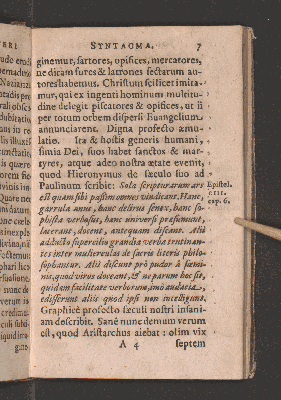 SYNTAGMA. 7
ginemur, sartores, opifices, mercatores,
ne dicam fures & latrones sectarum au-
tores habemus. Christum scilicet imita-
mur, qui ex ingenti hominum multitu-
dine delegit piscatores & opifices, ut ii
per totum orbem dispersi Euangelium
annunciarent. Digna profecto æmu-
latio. Ita & hostis generis humani,
simia Dei, suos habet sanctos & mar-
tyres, atque adeo nostra ætate evenit,
quod Hieronymus de sæculo suo ad
Paulinum scribit: Sola scripturarum ars
est quam sibi passim omnes vindicant. Hanc
garrula anus, hanc delirus senex, hanc so-
phista verbosus, hanc universi præsumunt,
lacerant, docent, antequam discant. Alii
adducto supercilio grandia verba trutinan-
tes inter mulierculas de sacris literis philo-
sophantur. Alii discunt prò pudor à fœmi-
nis, quod viros doceant, & ne parum hoc sit,
quidam facilitate verborum, imò audacia,
edisserunt aliis quod ipsi non intelligunt.
Graphicè profecto sæculi nostri insani-
am describit. Sanè nunc demum verum
est, quod Aristarchus aiebat: olim vix
A 4 septem
Epistol.
cap. 6.